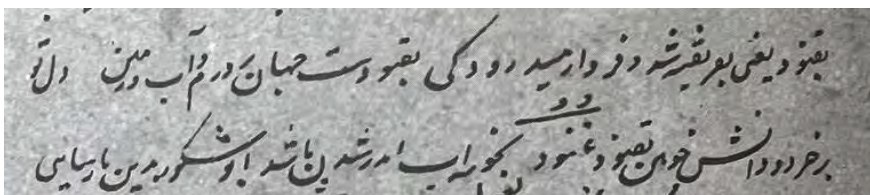 بغنود یعنی بفریفته شد و فرو آرمید رودکی بغنودست جهان بر درم و آب و زمین دل تو
بر خرد و دانش خوش بغنود و غنود بخواب اندر شدن باشد ابوشکور بدین پارسایی